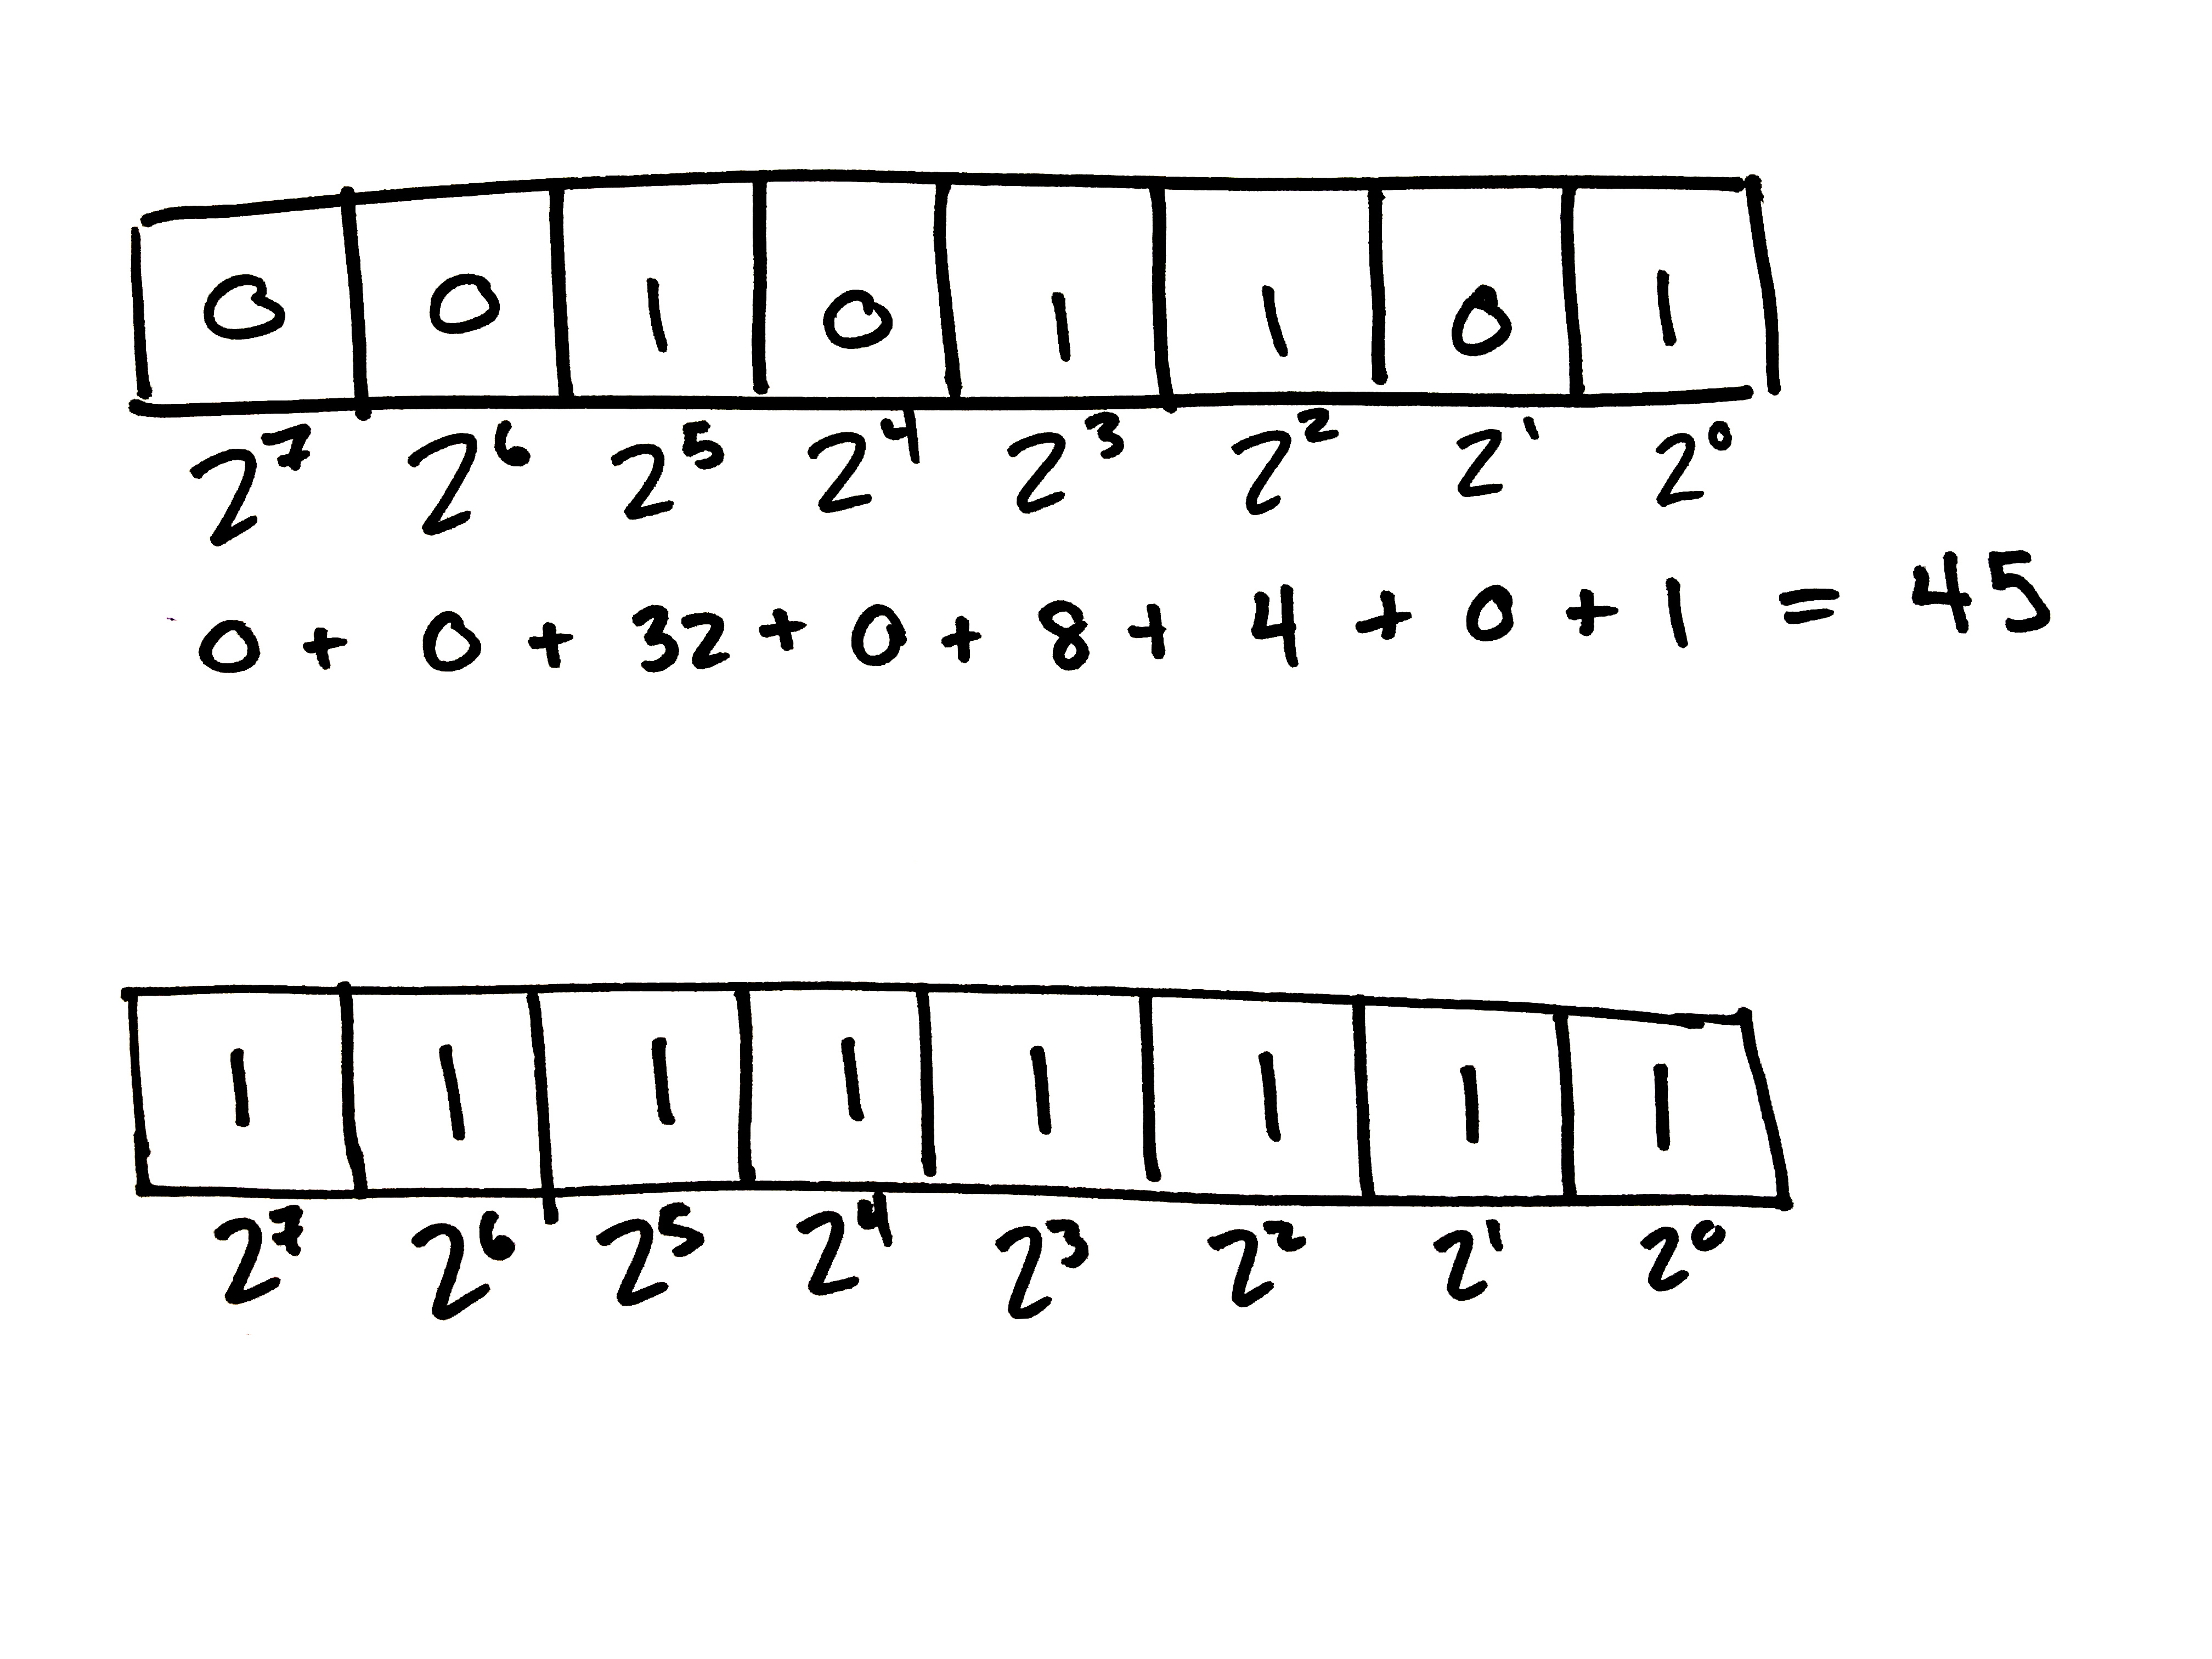 0 0 1 0 1 1 0 1
2⁷ 2⁶ 2⁵ 2⁴ 2³ 2² 2¹ 2⁰
0 + 0 + 32 + 0 + 8 + 4 + 0 + 1 = 45
1 1 1 1 1 1 1 1
2⁷ 2⁶ 2⁵ 2⁴ 2³ 2² 2¹ 2⁰